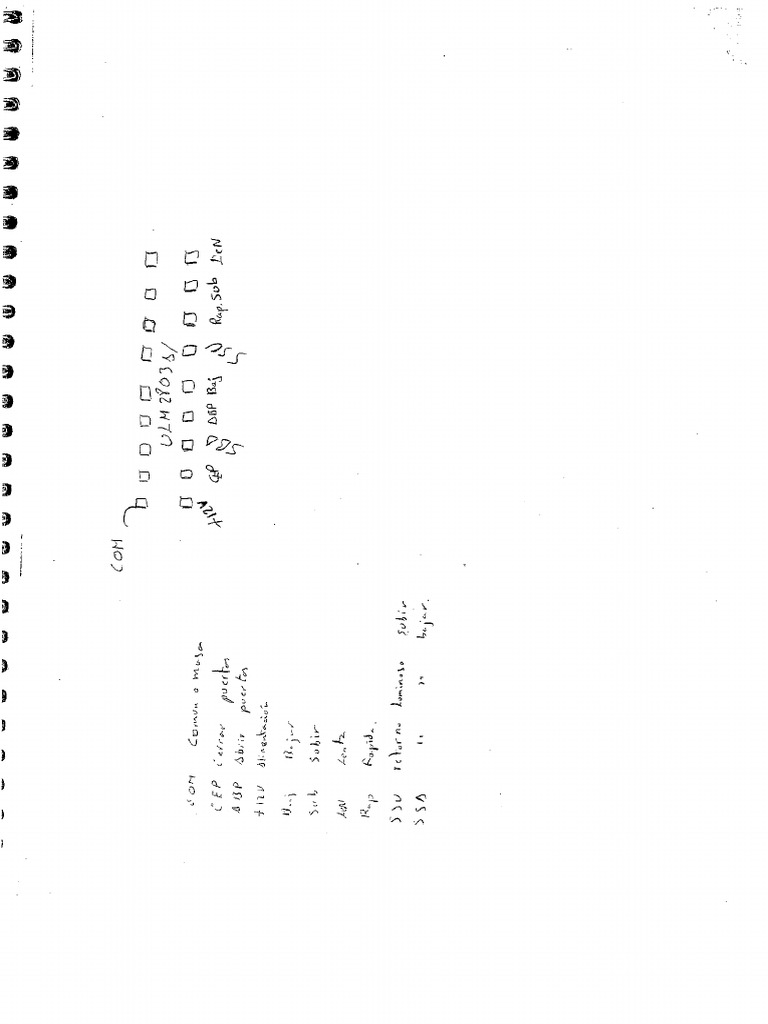 COM
ULM2803A/
+12V CEP SSD ABP Baj SSU Rap. Sub LeN
COM Comun o masa
CEP Cerrar puertas
ABP Abrir puertas
+12V Alimentación
Baj Bajar
Sub Subir
LeN Lenta
Rap Rapida.
SSU retorno luminoso subir
SSD " " " bajar.